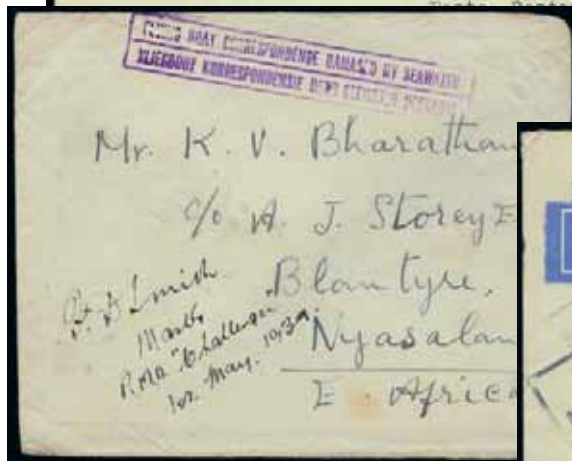 FLYING BOAT CORRESPONDENCE DAMAG'D BY SEAWATER
VLIEGBOOT KORRESPONDENSIE DEUR SEEWATER
Mr. K. V. Bharathan
c/o A. J. Storey E
Blantyre,
Nyasalan
E. Africa
Smith
"Challenger"
1st. May. 1939